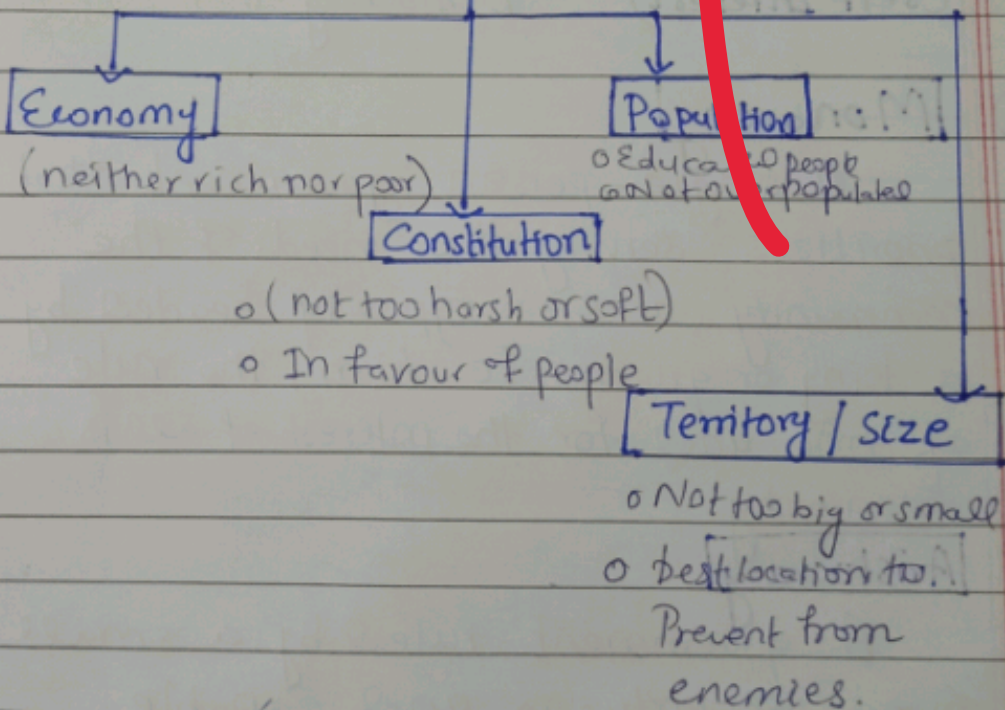 Economy
Population
(neither rich nor poor)
o Educa people
o Not populated
Constitution
o (not too harsh or soft)
o In favour of people
Territory / Size
o Not too big or small
o best location to.
Prevent from
enemies.